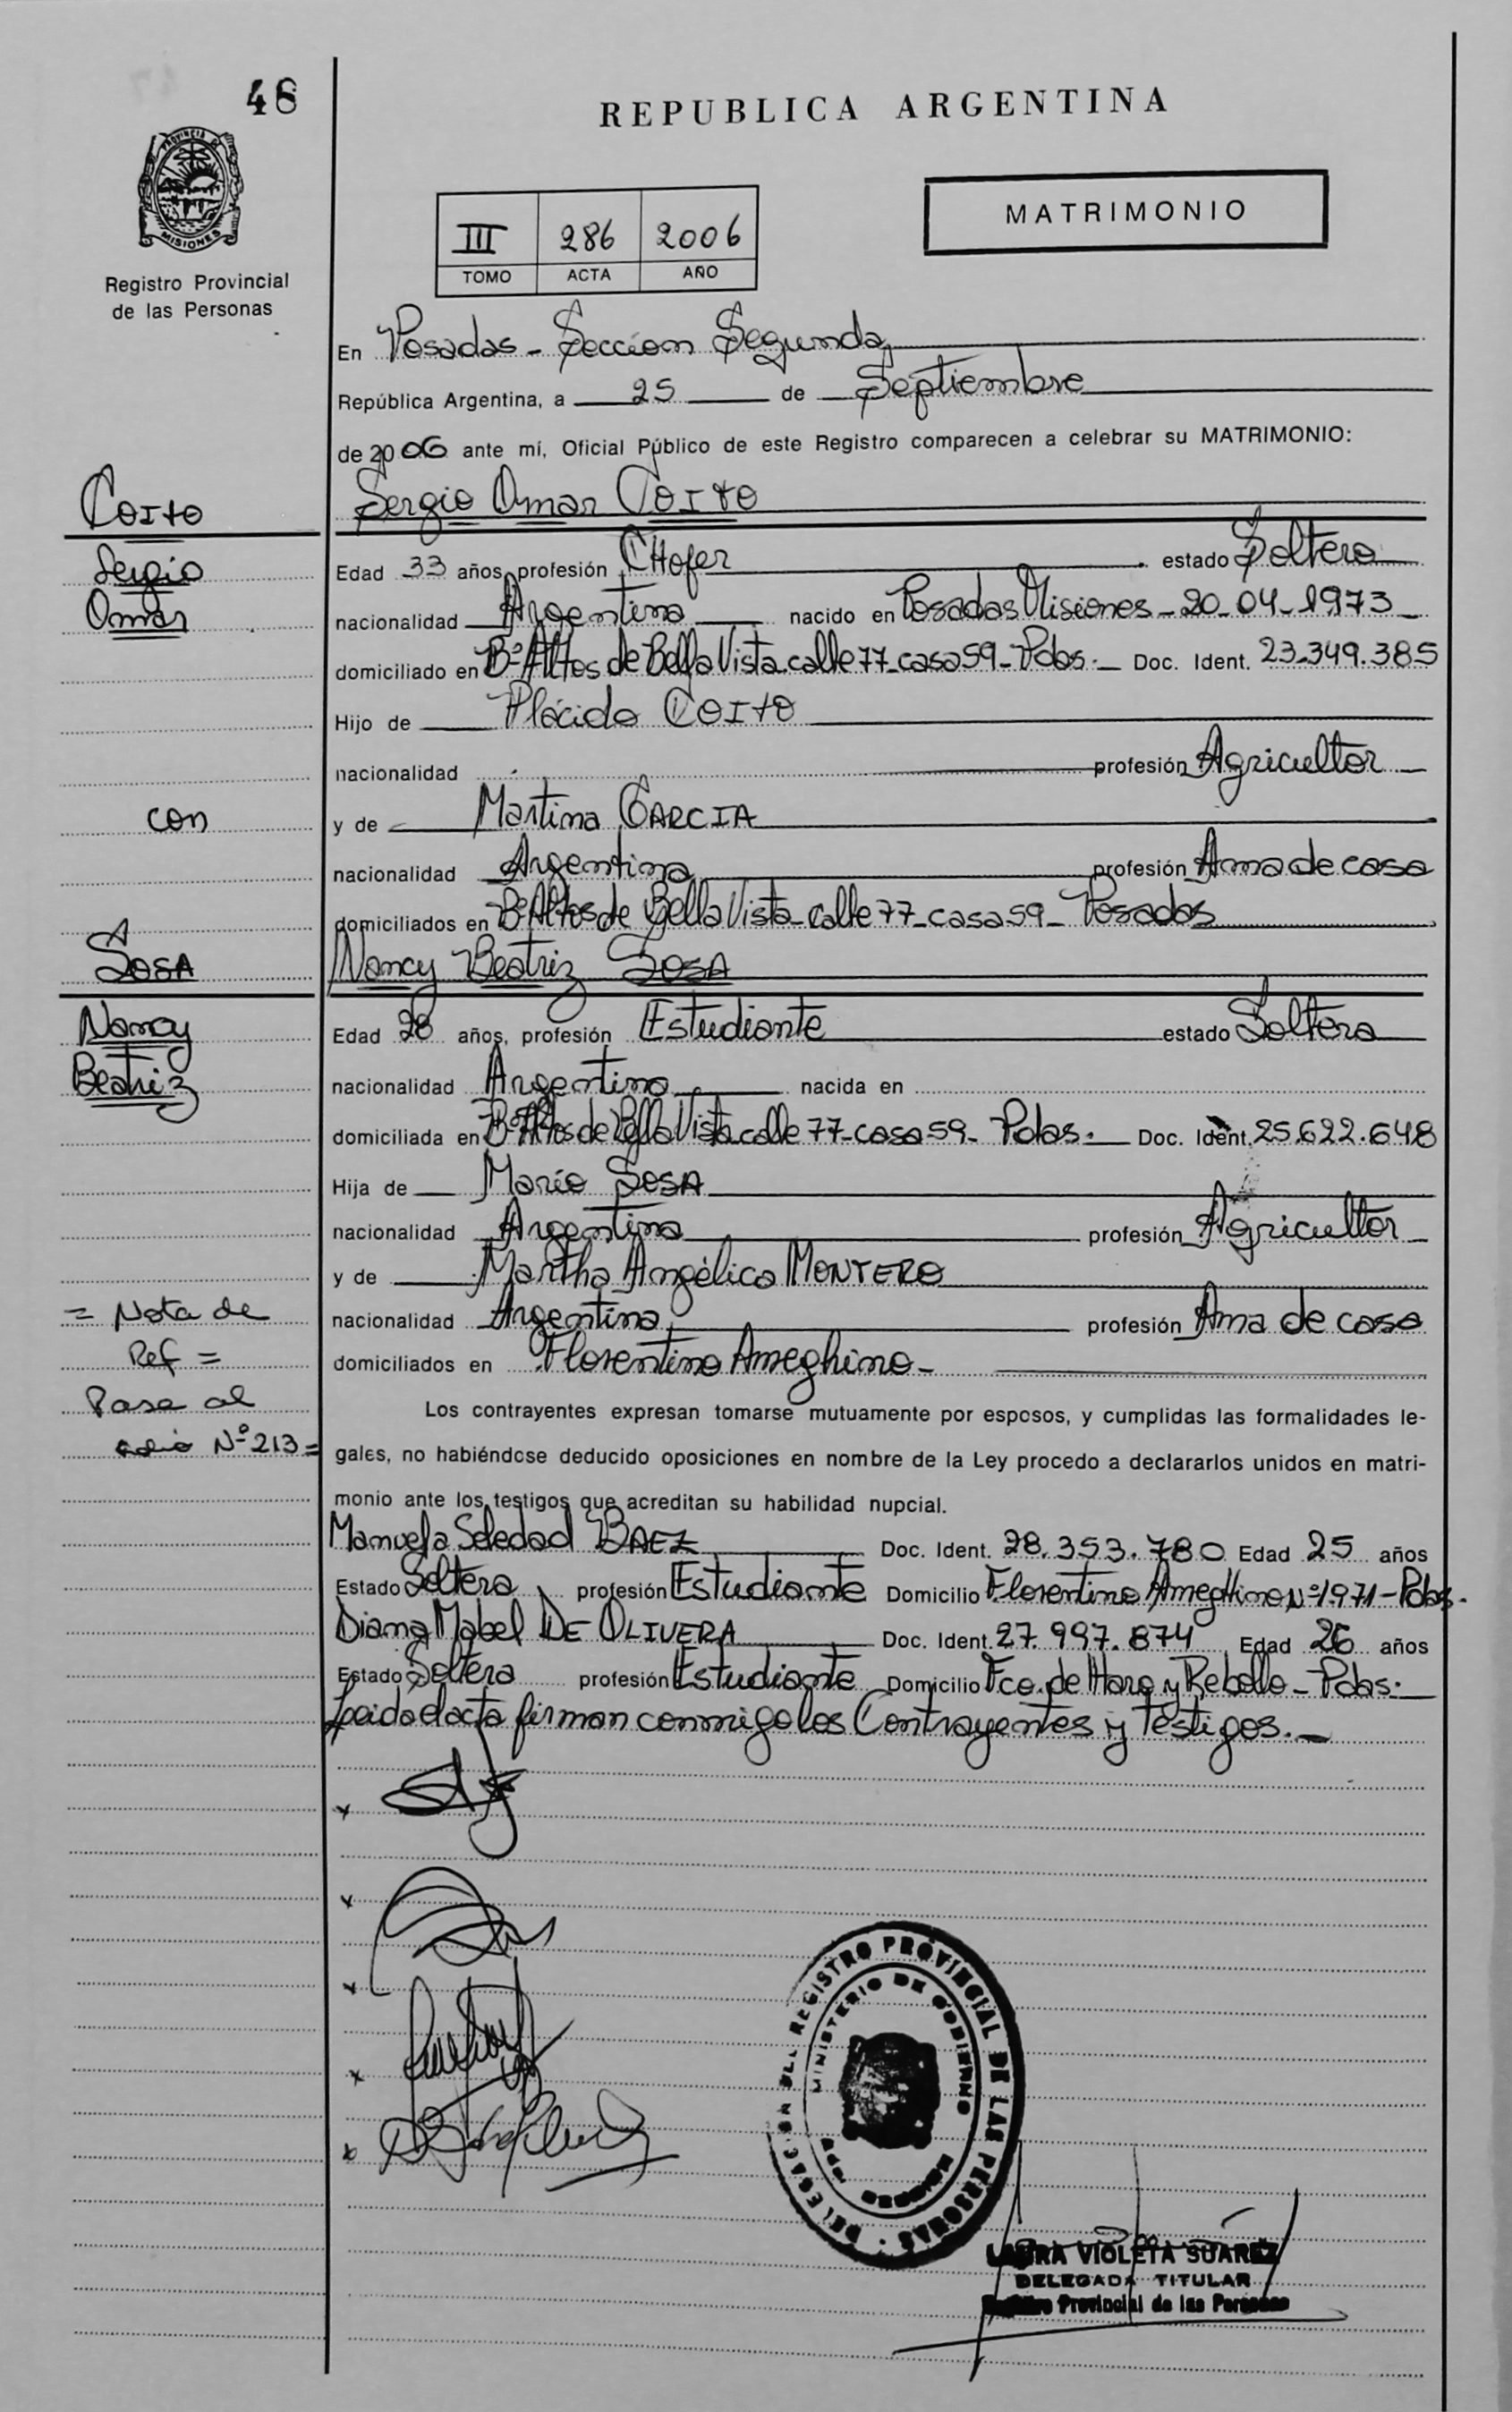 48
REPUBLICA ARGENTINA
PROVINCIA DE
MISIONES
Registro Provincial
de las Personas
MATRIMONIO
III 286 2006
TOMO ACTA AÑO
En Posadas - Seccion Segunda
República Argentina, a 25 de Septiembre
de 2006 ante mí, Oficial Público de este Registro comparecen a celebrar su MATRIMONIO:
COITO
Sergio Omar COITO
Sergio
Edad 33 años, profesión CHofer estado Soltero
Omar
nacionalidad Argentina nacido en Posadas Misiones - 20-04-1973
domiciliado en Bº Altos de Bella Vista calle 77 - casa 59 - Pdas. Doc. Ident. 23.349.385
Hijo de Plácido COITO
nacionalidad profesión Agricultor
con
y de Martina GARCIA
nacionalidad Argentina profesión Ama de casa
domiciliados en Bº Altos de Bella Vista - calle 77 - casa 59 - Posadas
SOSA
Nancy Beatriz SOSA
Nancy
Edad 28 años, profesión Estudiante estado Soltera
Beatriz
nacionalidad Argentina nacida en
domiciliada en Bº Altos de Bella Vista calle 77 - casa 59 - Pdas. Doc. Ident. 25.622.648
Hija de Mario SOSA
nacionalidad Argentina profesión Agricultor
y de Martha Angélica MONTERO
= Nota de
nacionalidad Argentina profesión Ama de casa
Ref =
domiciliados en Florentino Ameghino -
Pasa al
Los contrayentes expresan tomarse mutuamente por esposos, y cumplidas las formalidades le-
folio Nº 213 =
gales, no habiéndose deducido oposiciones en nombre de la Ley procedo a declararlos unidos en matri-
monio ante los testigos que acreditan su habilidad nupcial.
Manuela Soledad BAEZ Doc. Ident. 28.353.780 Edad 25 años
Estado Soltera profesión Estudiante Domicilio Florentino AmegHino Nº 1971 - Pdas.
Diana Mabel DE OLIVERA Doc. Ident. 27.997.874 Edad 26 años
Estado Soltera profesión Estudiante Domicilio Fco. de Haro y Rebollo - Pdas.
Leida el acta firman conmigo los Contrayentes y Testigos.
DELEGACION DEL REGISTRO PROVINCIAL DE LAS PERSONAS
MINISTERIO DE GOBIERNO
MISIONES
LAURA VIOLETA SUAREZ
DELEGADA TITULAR
Registro Provincial de las Personas